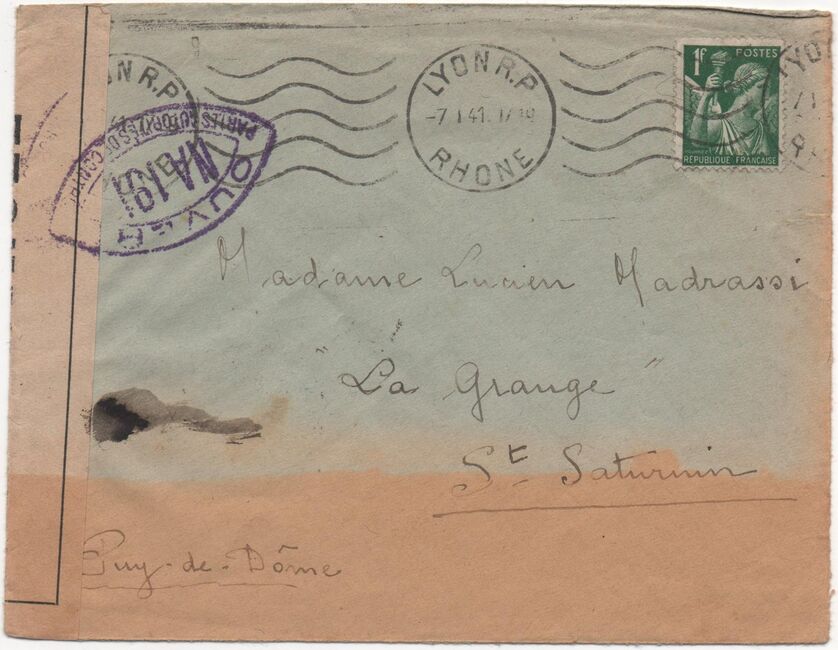 ON R.P
LYON R.P.
-7 1 41.
RHONE
1F POSTES
REPUBLIQUE FRANÇAISE
LYON
OUVERT
PAR LES AUTORITÉS DE CONTRÔLE
NA 191
Madame Lucien Madrassi
"La Grange"
St Saturnin
Puy-de-Dôme